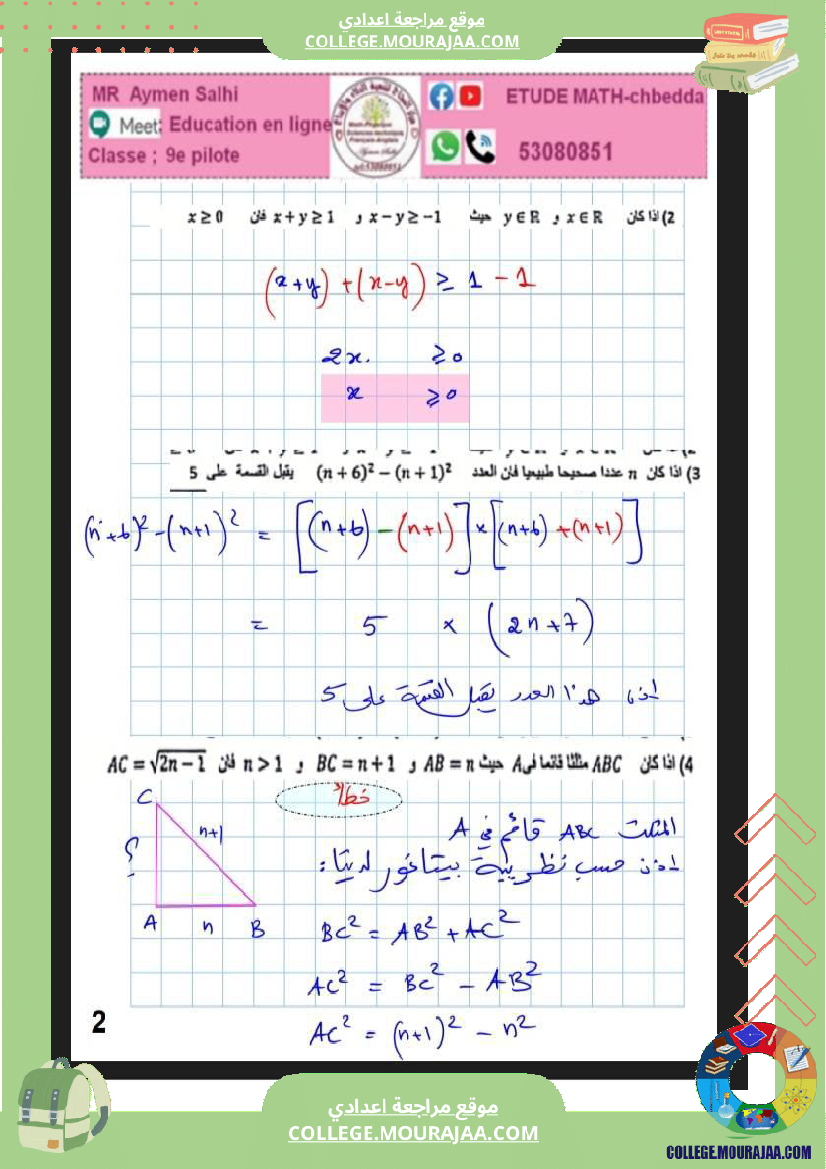 موقع مراجعة اعدادي
COLLEGE.MOURAJAA.COM
MR Aymen Salhi
Meet: Education en ligne
Classe ; 9e pilote
ETUDE MATH-chbedda
53080851
2) اذا كان x∈R و y∈R حيث x−y≥−1 و x+y≥1 فان x≥0
(x+y)+(x-y) ≥ 1 - 1
2x. ≥0
x ≥0
3) اذا كان n عددا صحيحا طبيعيا فان العدد (n+6)²−(n+1)² يقبل القسمة على 5
(n+6)²-(n+1)² = [(n+6)-(n+1)]×[(n+6)+(n+1)]
= 5 × (2n+7)
اذن هذا العدد يقبل القسمة على 5
4) اذا كان ABC مثلثا قائما في A حيث AB=n و BC=n+1 و n>1 فان AC=√2n−1
خطأ
C
n+1
؟
A n B
المثلث ABC قائم في A
اذن حسب نظرية بيتاغور لدينا:
BC² = AB² + AC²
AC² = BC² - AB²
AC² = (n+1)² - n²
2
موقع مراجعة اعدادي
COLLEGE.MOURAJAA.COM
COLLEGE.MOURAJAA.COM